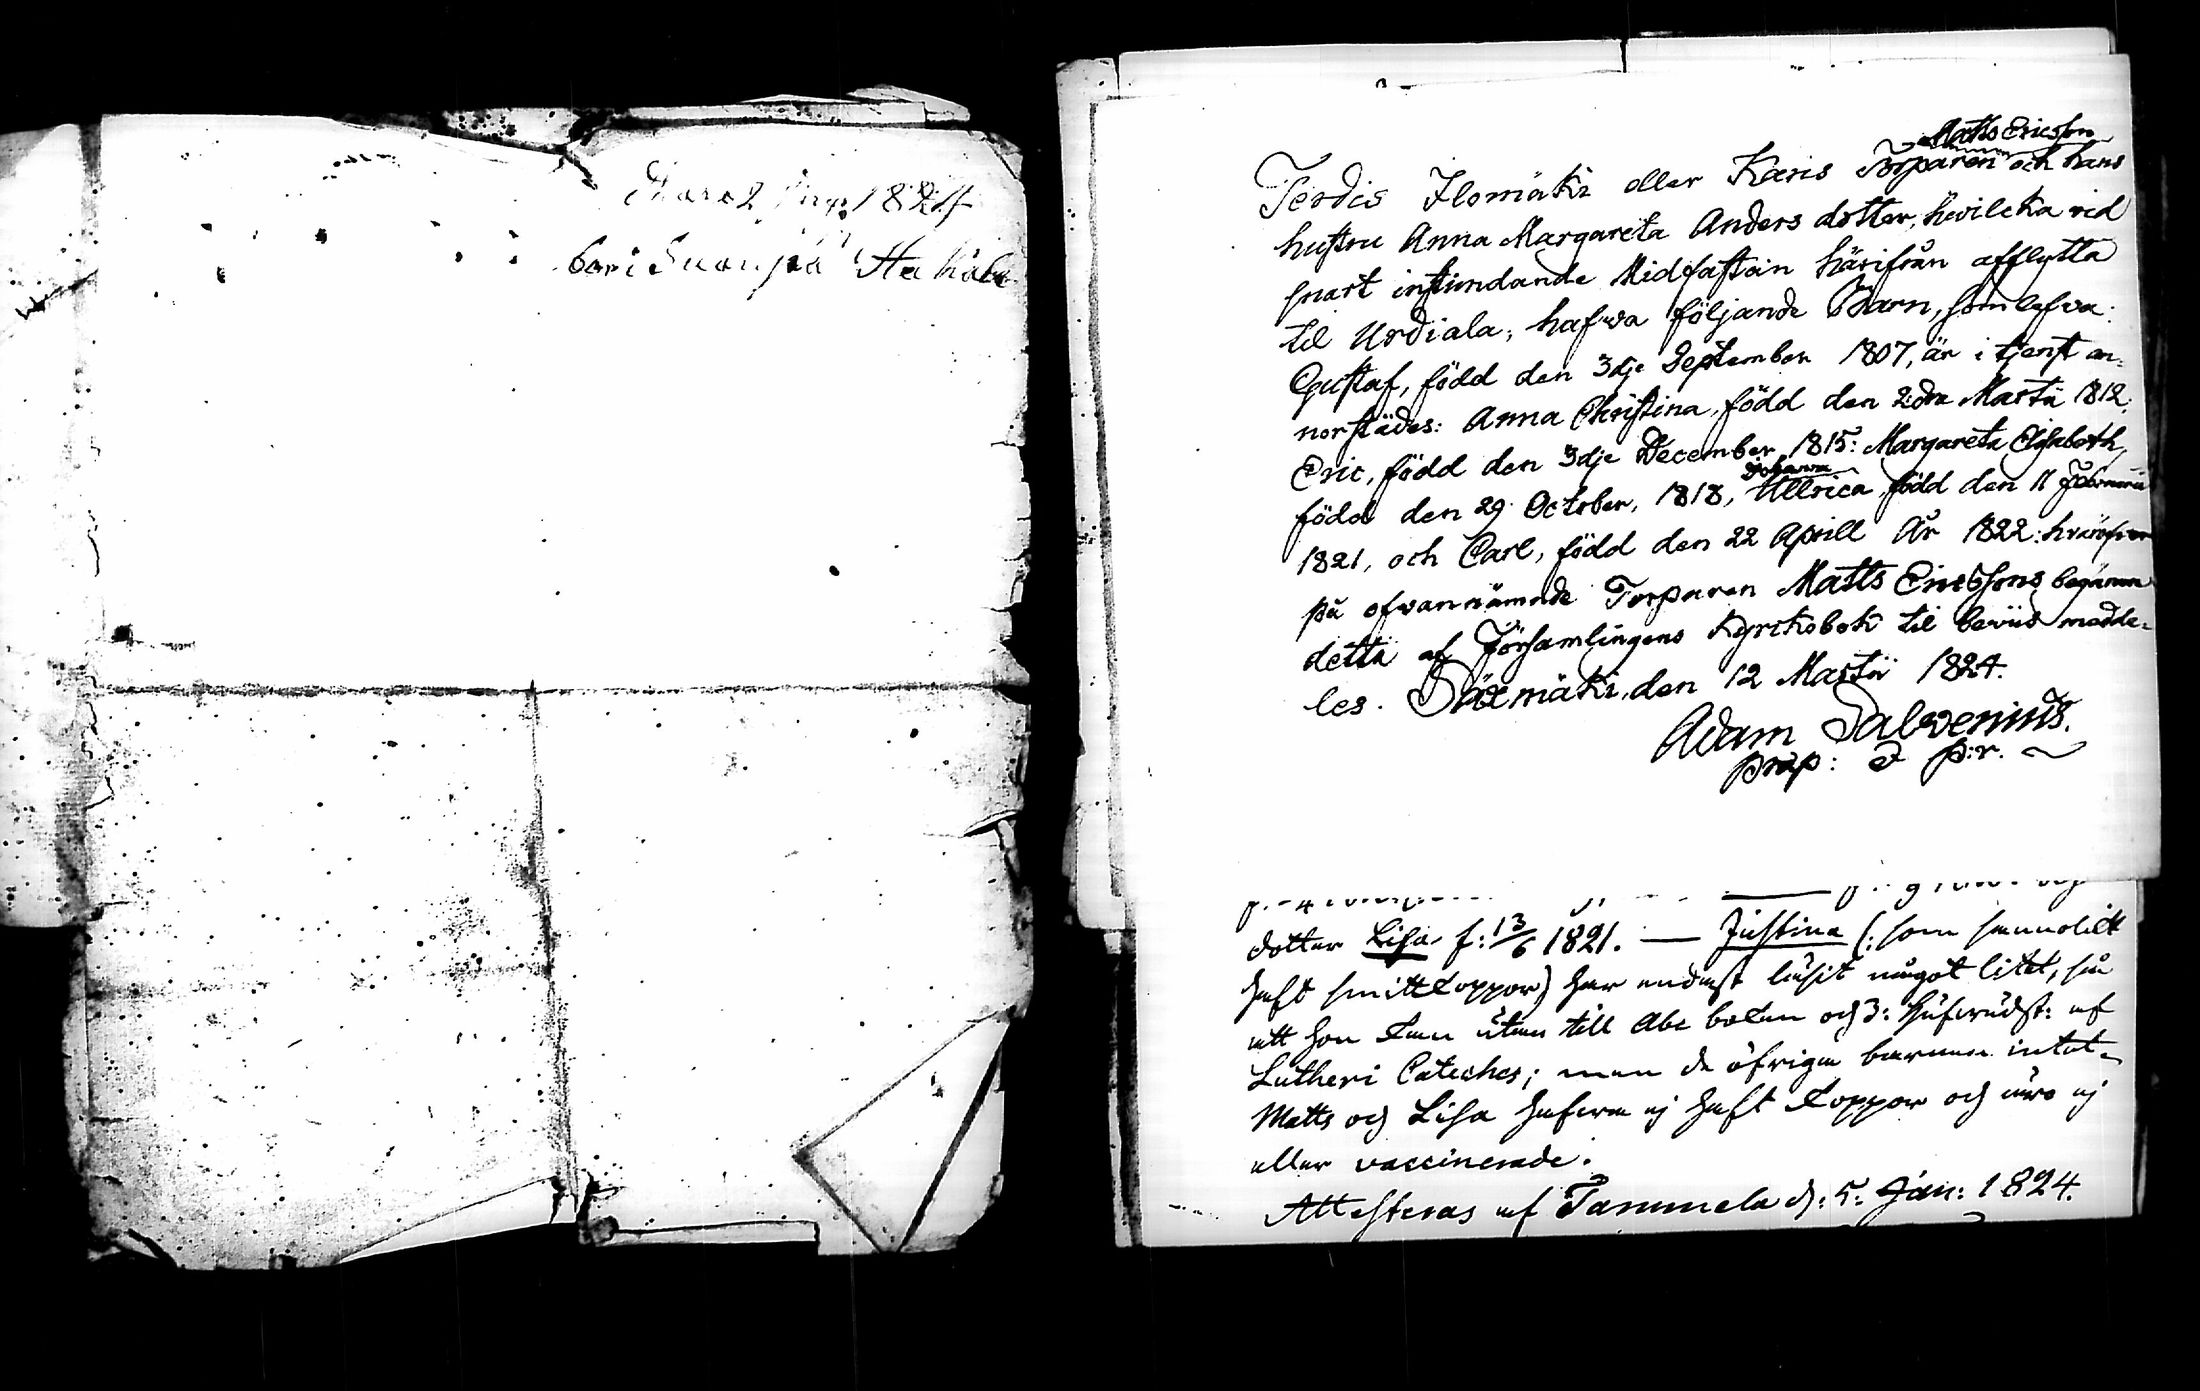 1824
bor i Suonpää
Matts Ericsson
Ferdis Ilomäki eller Karis Torparen och hans
hustru Anna Margareta Anders dotter, hvilcka vid
snart instundande Midfastan härifrån afflytta
til Urdiala, hafwa följande Barn, som lefva:
Gustaf, född den 3dje September 1807, är i tjenst an-
norstädes: Anna Christina, född den 2dra Martii 1812;
Eric, född den 3dje December 1815: Margareta Elisabeth,
Johanna
född den 29 October, 1818, Ullrica, född den 11 Februarii
1821, och Carl, född den 22 Aprill År 1822: hvaröfver
på ofvannämnde Torparen Matts Ericssons begäran
detta af Församlingens Kyrckobok til beviis medde-
les. Säxmäki, den 12 Martii 1824.
Adam Salvenius.
prap: & p:r.
dotter Lisa f: 13/6 1821. — Justina (: som sannolikt
haft smittkoppor) har endast läsit något litet, så
att hon kan utan till Abc boken och 3: hufvudst: af
Lutheri Cateches; men de öfriga barnen intet.
Matts och Lisa hafwa ej haft koppor och äro ej
eller vaccinerade.
Attesteras af Tammela d: 5. Jan: 1824.